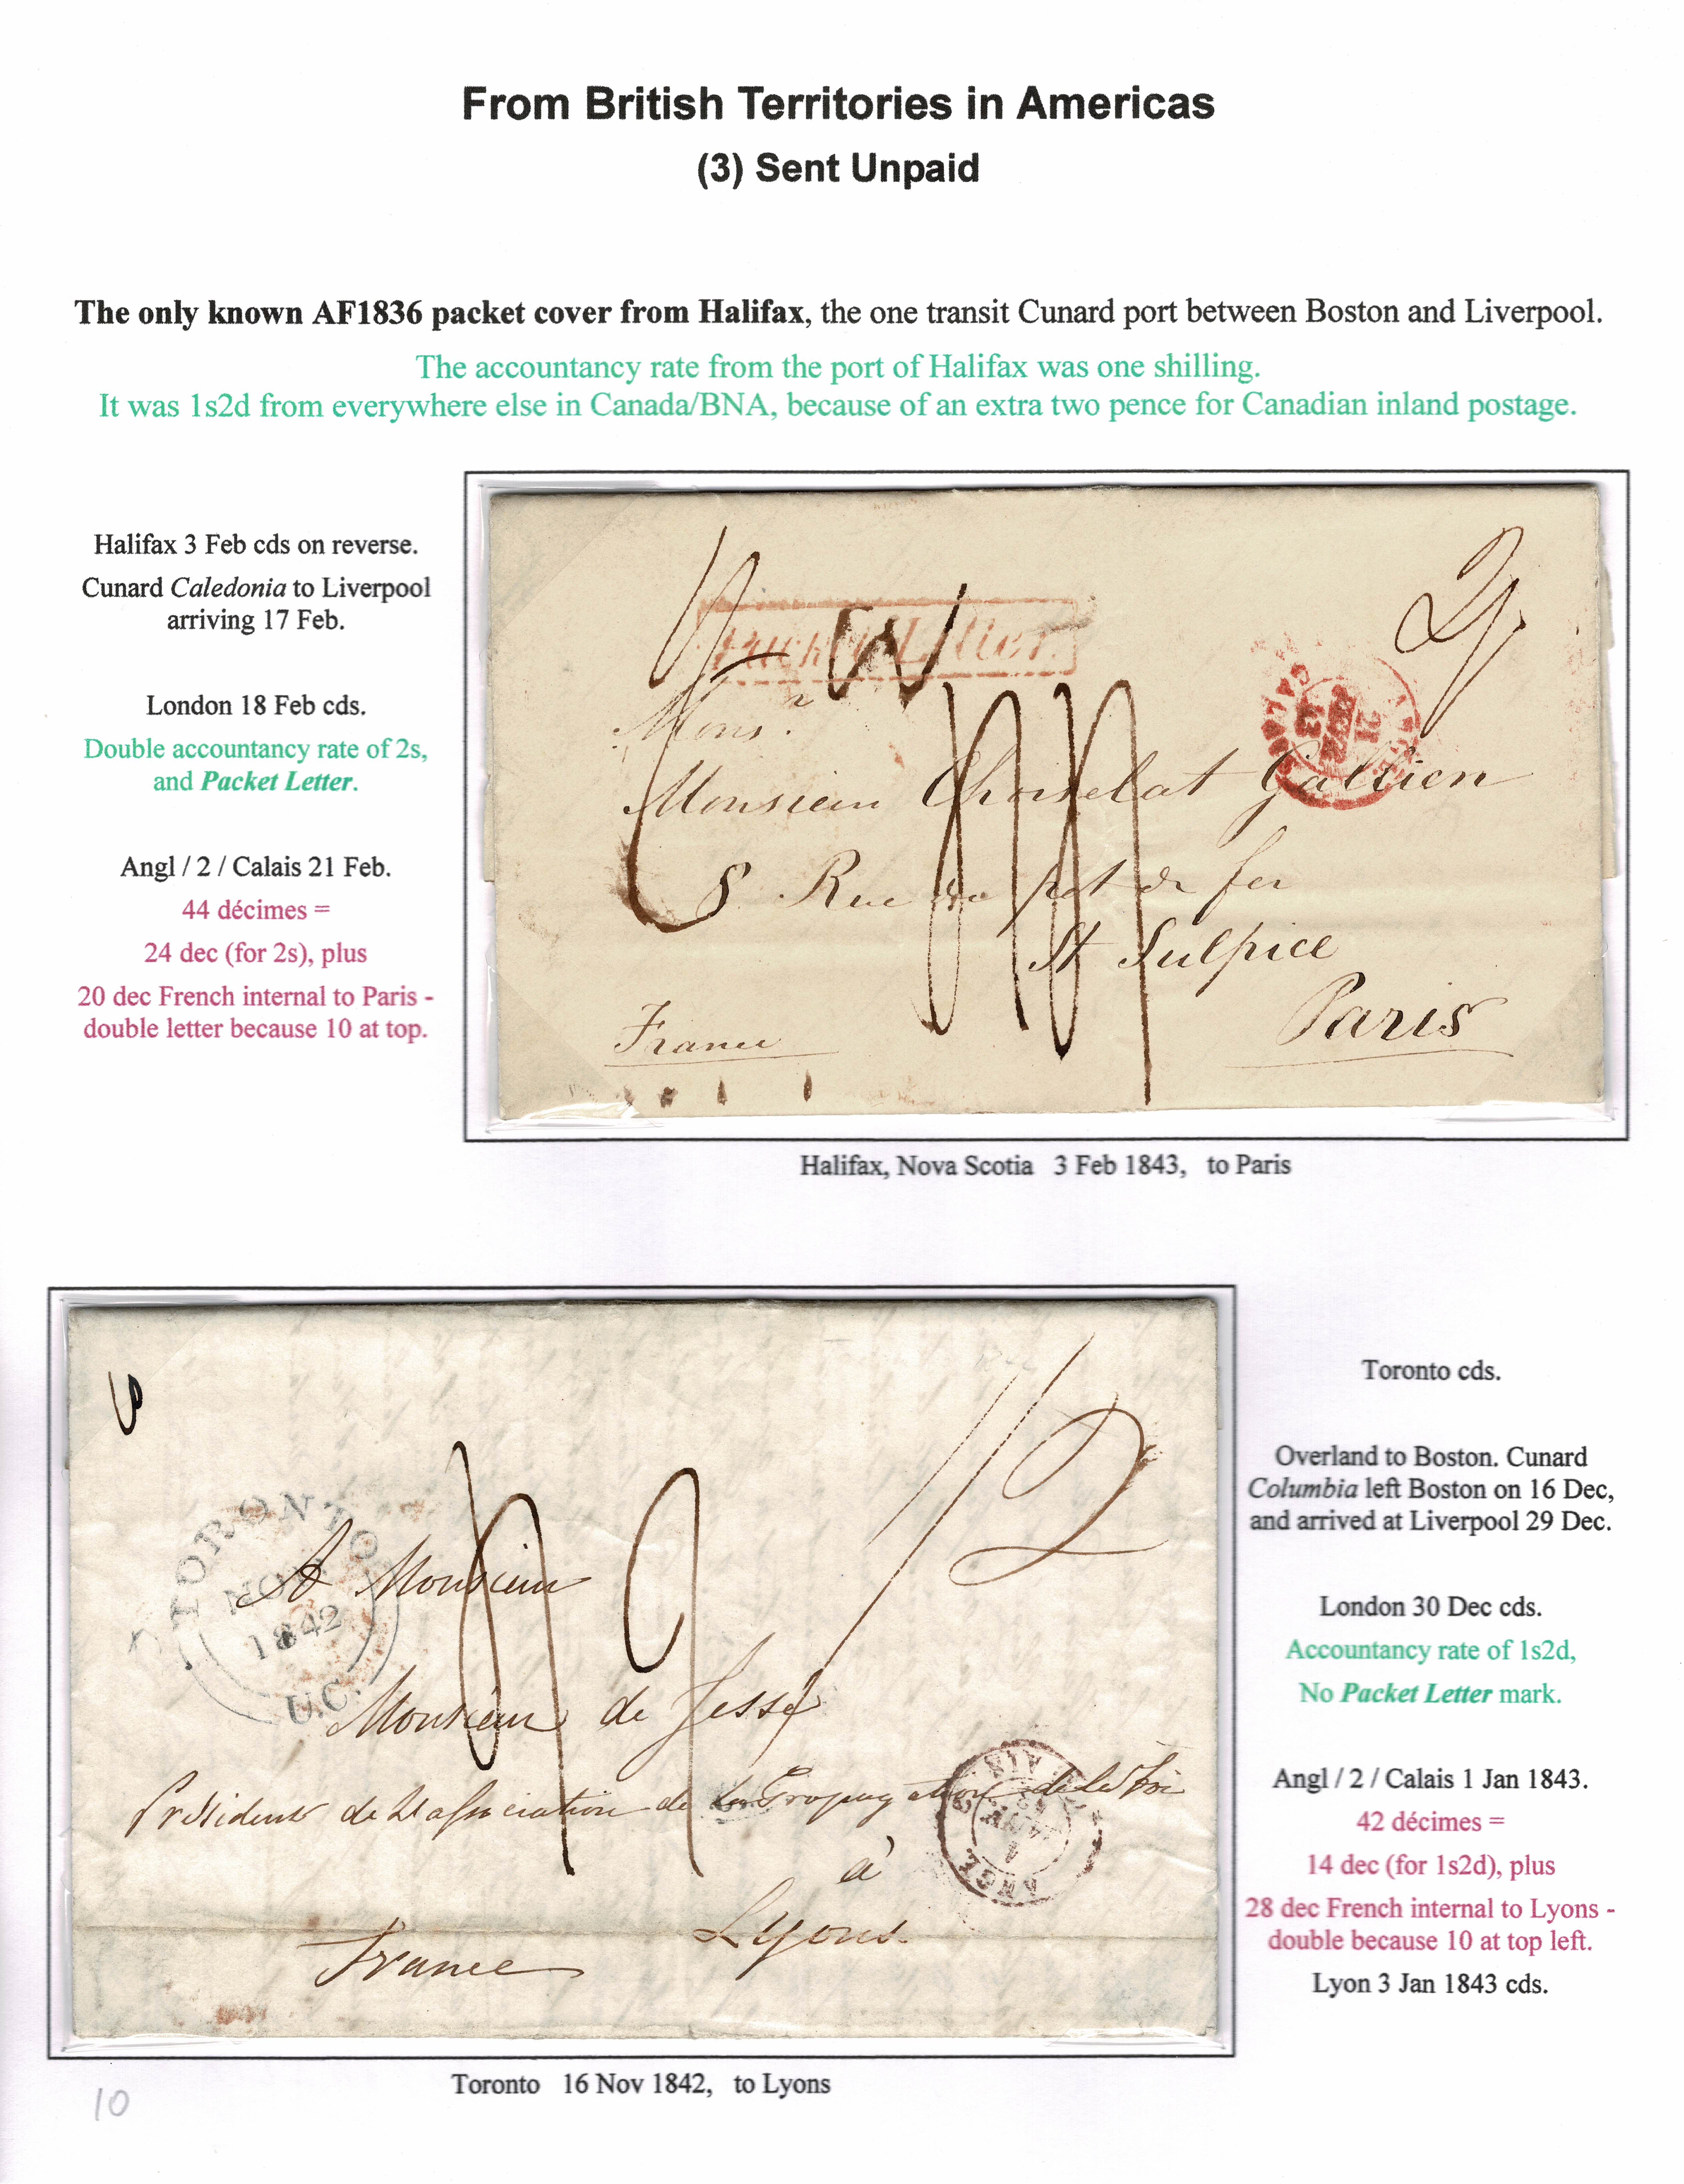 From British Territories in Americas
(3) Sent Unpaid
The only known AF1836 packet cover from Halifax, the one transit Cunard port between Boston and Liverpool.
The accountancy rate from the port of Halifax was one shilling.
It was 1s2d from everywhere else in Canada/BNA, because of an extra two pence for Canadian inland postage.
Halifax 3 Feb cds on reverse.
Cunard Caledonia to Liverpool
arriving 17 Feb.
London 18 Feb cds.
Double accountancy rate of 2s,
and Packet Letter.
Angl / 2 / Calais 21 Feb.
44 décimes =
24 dec (for 2s), plus
20 dec French internal to Paris -
double letter because 10 at top.
Packet Letter.
Monsr
Monsieur Choiselat Gallien
8 Rue du pot de fer
St Sulpice
Paris
France
Halifax, Nova Scotia 3 Feb 1843, to Paris
1/2
TORONTO
1842
U.C.
A Monsieur
Monsieur de Jessé
Président de l'association de la Propagation de la Foi
à
Lyons.
France
Toronto cds.
Overland to Boston. Cunard
Columbia left Boston on 16 Dec,
and arrived at Liverpool 29 Dec.
London 30 Dec cds.
Accountancy rate of 1s2d,
No Packet Letter mark.
Angl / 2 / Calais 1 Jan 1843.
42 décimes =
14 dec (for 1s2d), plus
28 dec French internal to Lyons -
double because 10 at top left.
Lyon 3 Jan 1843 cds.
Toronto 16 Nov 1842, to Lyons
10